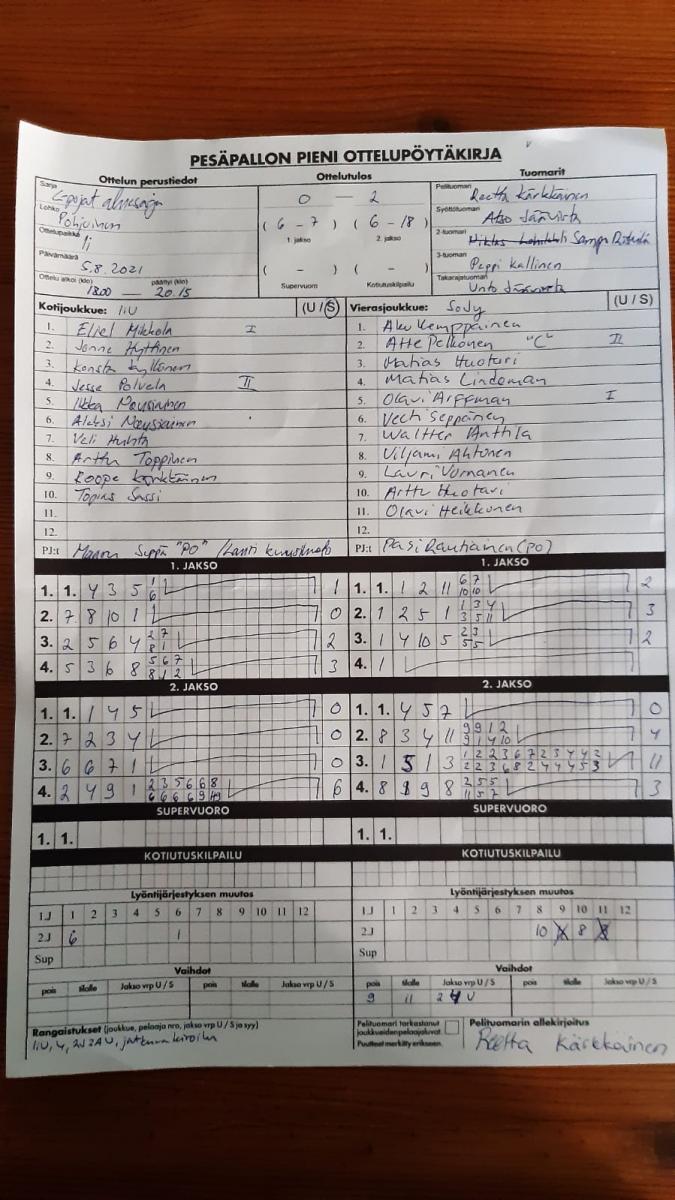 PESÄPALLON PIENI OTTELUPÖYTÄKIRJA
Ottelun perustiedot Ottelutulos Tuomarit
Sarja
Lohko Pohjoinen
Ottelupaikka Ii
Päivämäärä 5.8.2021
Ottelu alkoi (klo) 18.00 päättyi (klo) 20.15
0 — 2
( 6 - 7 ) ( 6 - 18 )
1. jakso 2. jakso
( - ) ( - )
Supervuoro Kotiutuskilpailu
Pelituomari Reetta Kärkkäinen
Syöttötuomari Atso
2-tuomari Sampo
3-tuomari Peppi Kallinen
Takarajatuomari Unto
Kotijoukkue: IiU (U / S)
1. Eliel Mikkola I
2. Jonne Hyttinen
3. Konsta Kyllönen
4. Jesse Polvela II
5. Ilkka
6. Aleksi
7. Veli Huhta
8. Arttu Toppinen
9. Roope Kärkkäinen
10. Topias Sassi
11.
12.
PJ:t "PO"
Vierasjoukkue: SoJy (U / S)
1. Aku Kemppainen
2. Atte Pelkonen "C" II
3. Matias Huotari
4. Matias Lindeman
5. Olavi Arffman I
6. Veeti Seppänen
7. Waltter Anttila
8. Viljami Ahtonen
9. Lauri Vornanen
10. Arttu Huotari
11. Olavi Heikkonen
12.
PJ:t Pasi Rautiainen (PO)
1. JAKSO 1. JAKSO
1. 1. 4 3 5 1 6 1
2. 7 8 10 1 0
3. 2 5 6 4 2 7 8 1 2
4. 5 3 6 8 5 6 7 8 1 2 3
1. 1. 1 2 11 6 7 10 10 2
2. 1 2 5 1 1 3 4 3 5 11 3
3. 1 4 10 5 2 3 5 5 2
4. 1
2. JAKSO 2. JAKSO
1. 1. 1 4 5 0
2. 7 2 3 4 0
3. 6 6 7 1 0
4. 2 4 9 1 2 3 5 6 6 8 6
1. 1. 4 5 7 0
2. 8 3 4 11 9 9 1 2 9 1 4 10 4
3. 1 5 1 3 1 2 2 3 6 7 2 3 4 4 2 2 2 3 6 8 2 4 4 4 5 3 11
4. 8 9 8 2 5 5 11 5 7 3
SUPERVUORO SUPERVUORO
1. 1. 1. 1.
KOTIUTUSKILPAILU KOTIUTUSKILPAILU
Lyöntijärjestyksen muutos Lyöntijärjestyksen muutos
1.J 1 2 3 4 5 6 7 8 9 10 11 12
2.J 6 1
Sup
1.J 1 2 3 4 5 6 7 8 9 10 11 12
2.J 10 8
Sup
Vaihdot Vaihdot
pois tilalle Jakso vrp U / S pois tilalle Jakso vrp U / S
pois tilalle Jakso vrp U / S pois tilalle Jakso vrp U / S
9 11 2 4 U
Rangaistukset (joukkue, pelaaja nro, jakso vrp U / S ja syy)
IiU, 4, 2J 2A U, jatkuva kiroilu
Pelituomari tarkastanut joukkueiden pelaajaluvat.
Puutteet merkitty erikseen.
Pelituomarin allekirjoitus
Reetta Kärkkäinen